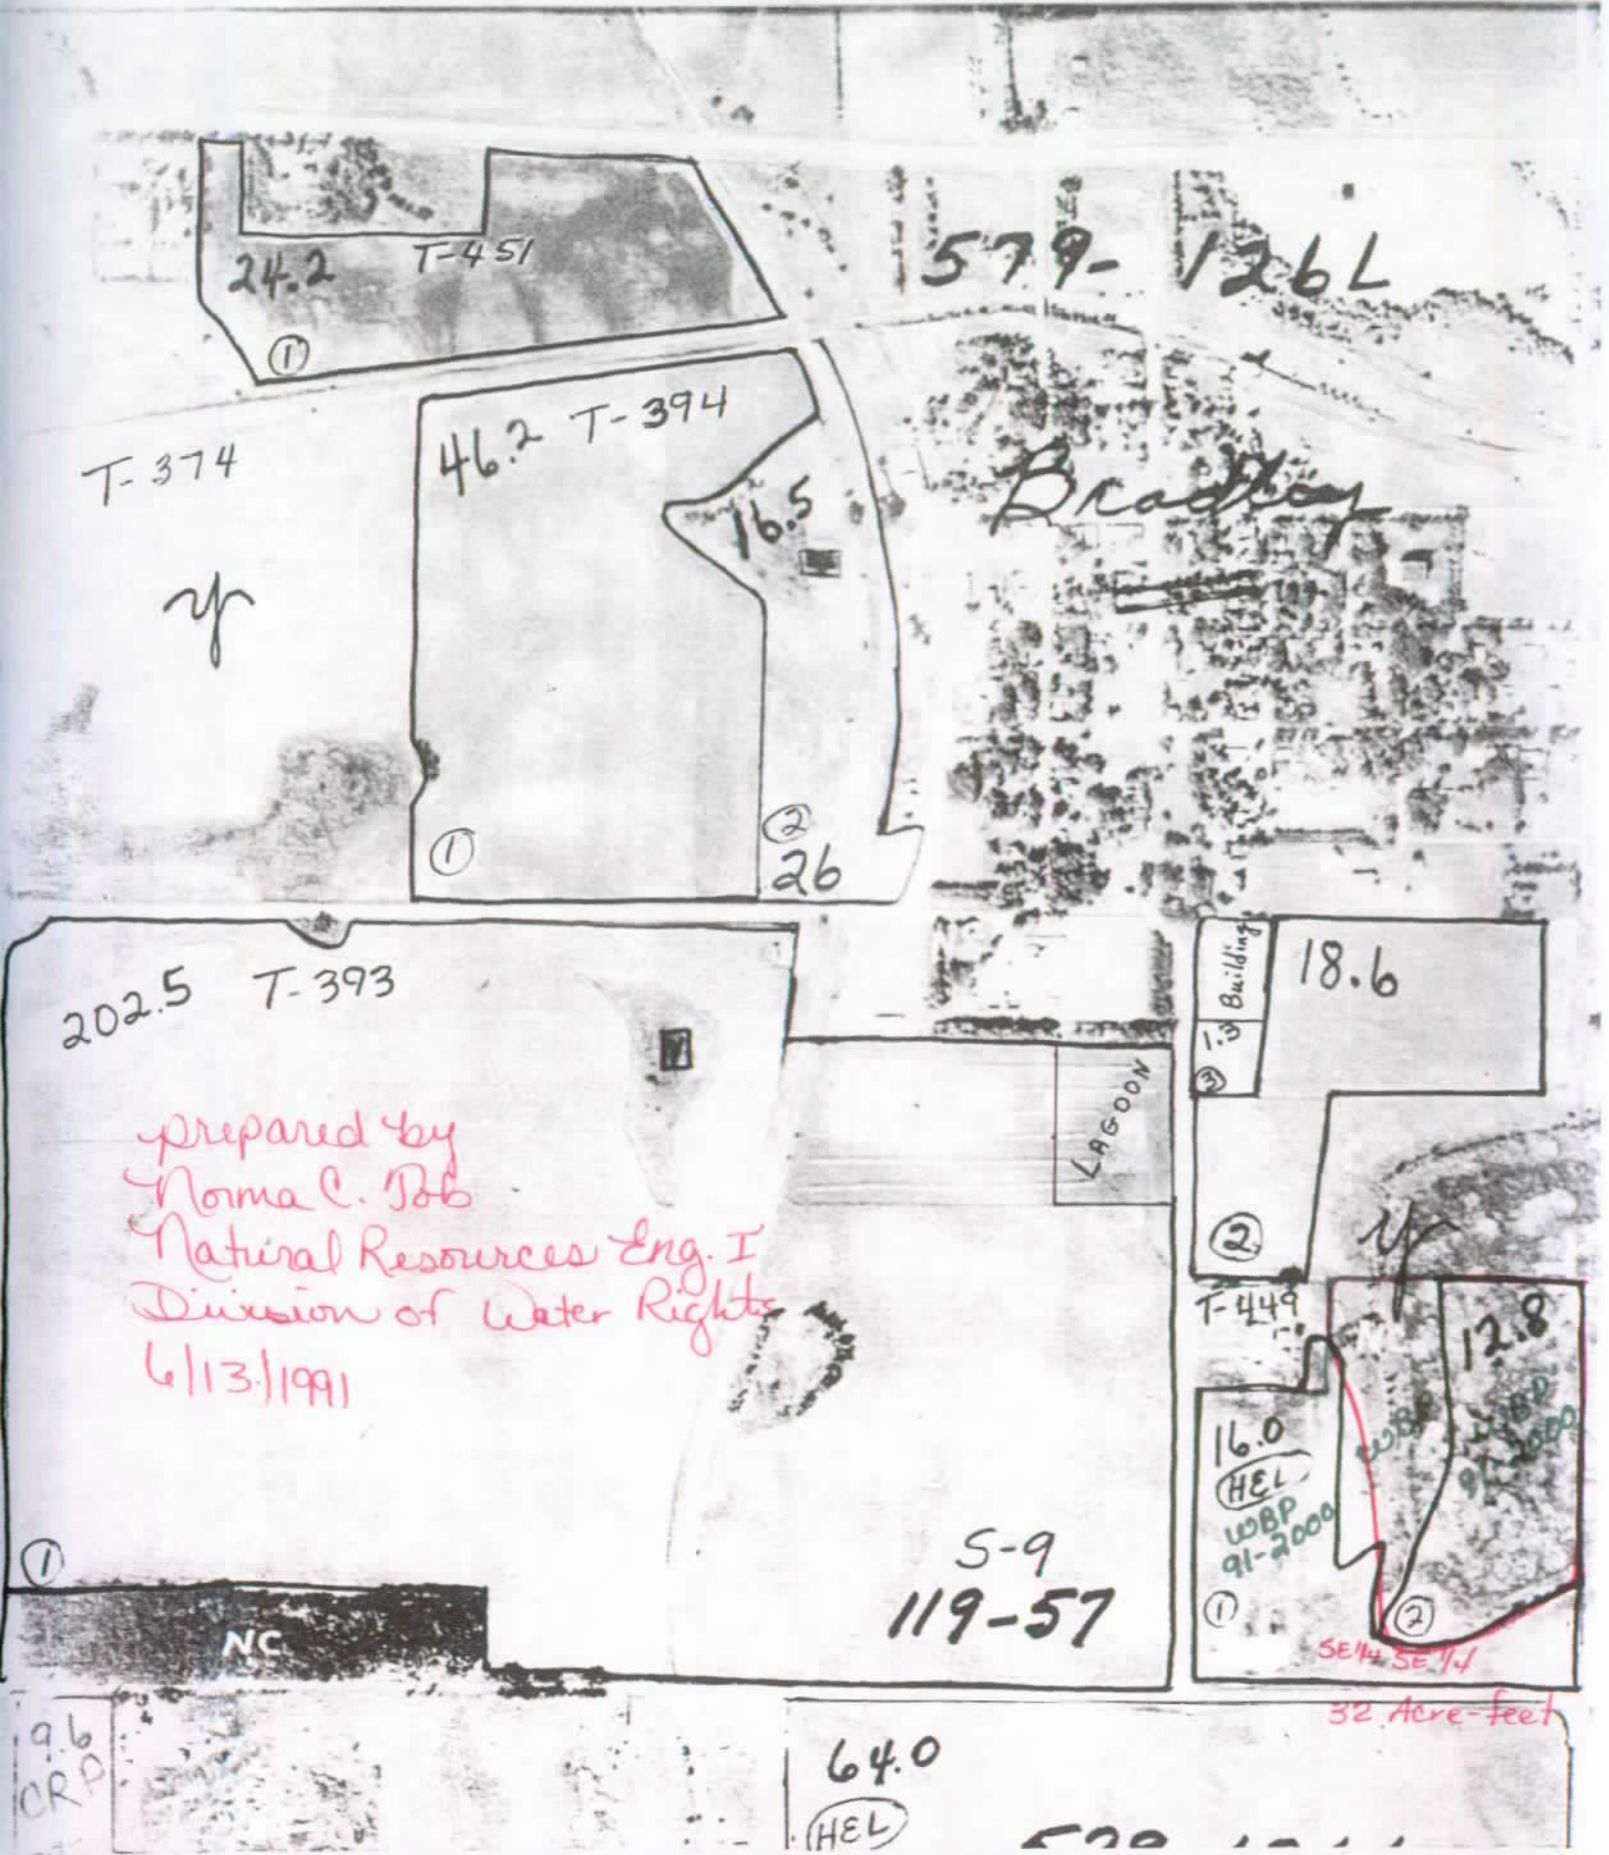 24.2
T-451
①
579-126L
T-374
46.2 T-394
16.5
Bradley
①
②
26
202.5 T-393
Building
18.6
1.3
③
LAGOON
prepared by
Norma C. Job
Natural Resources Eng. I
Division of Water Rights
6/13/1991
②
T-449
12.8
WBP
WBP
91-2000
16.0
HEL
WBP
91-2000
①
②
SE 1/4 SE 1/4
32 Acre-feet
①
S-9
119-57
NC
9.6
CRP
64.0
HEL